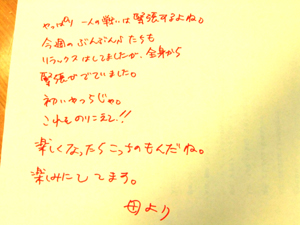 やっぱり 一人の戦いは緊張するよね。
今週のぶんぶんぶたちも
リラックスはしてましたが、全身から
緊張せでていました。
初いやっちじゃ。
これものりこえて!!
楽しくなったらこっちのもんだね。
楽しみにしてます。
母より